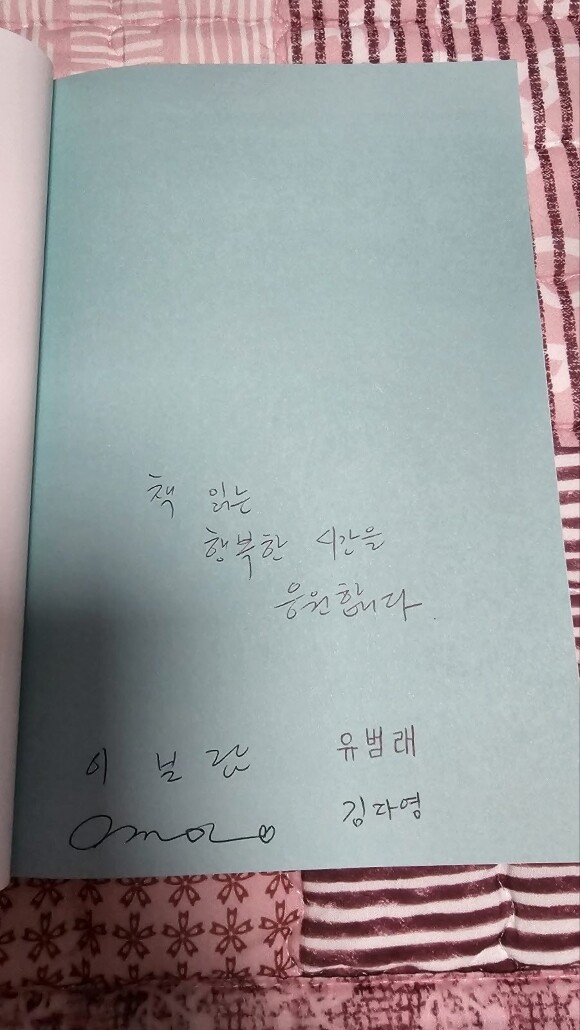 책 읽는
행복한 시간을
응원합니다.
이보람
유범래
김다영